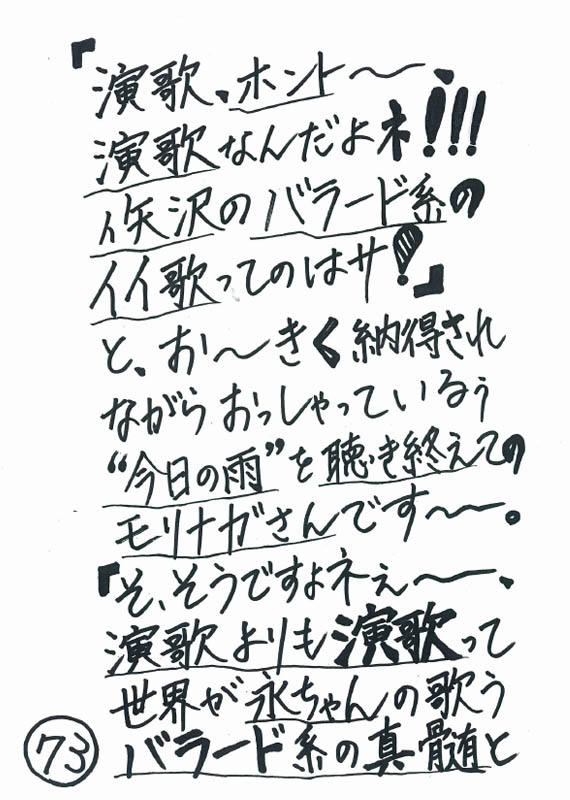 『演歌、ホント〜、
演歌なんだよネ!!!
イ矢沢のバラード系の
イイ歌ってのはサ!』
と、お〜きく納得され
ながらおっしゃっているぅ
“今日の雨”を聴き終えての
モリナガさんです〜〜。
『そ、そうですよネぇ〜〜、
演歌よりも演歌って
世界が永ちゃんの歌う
バラード系の真髄と
73